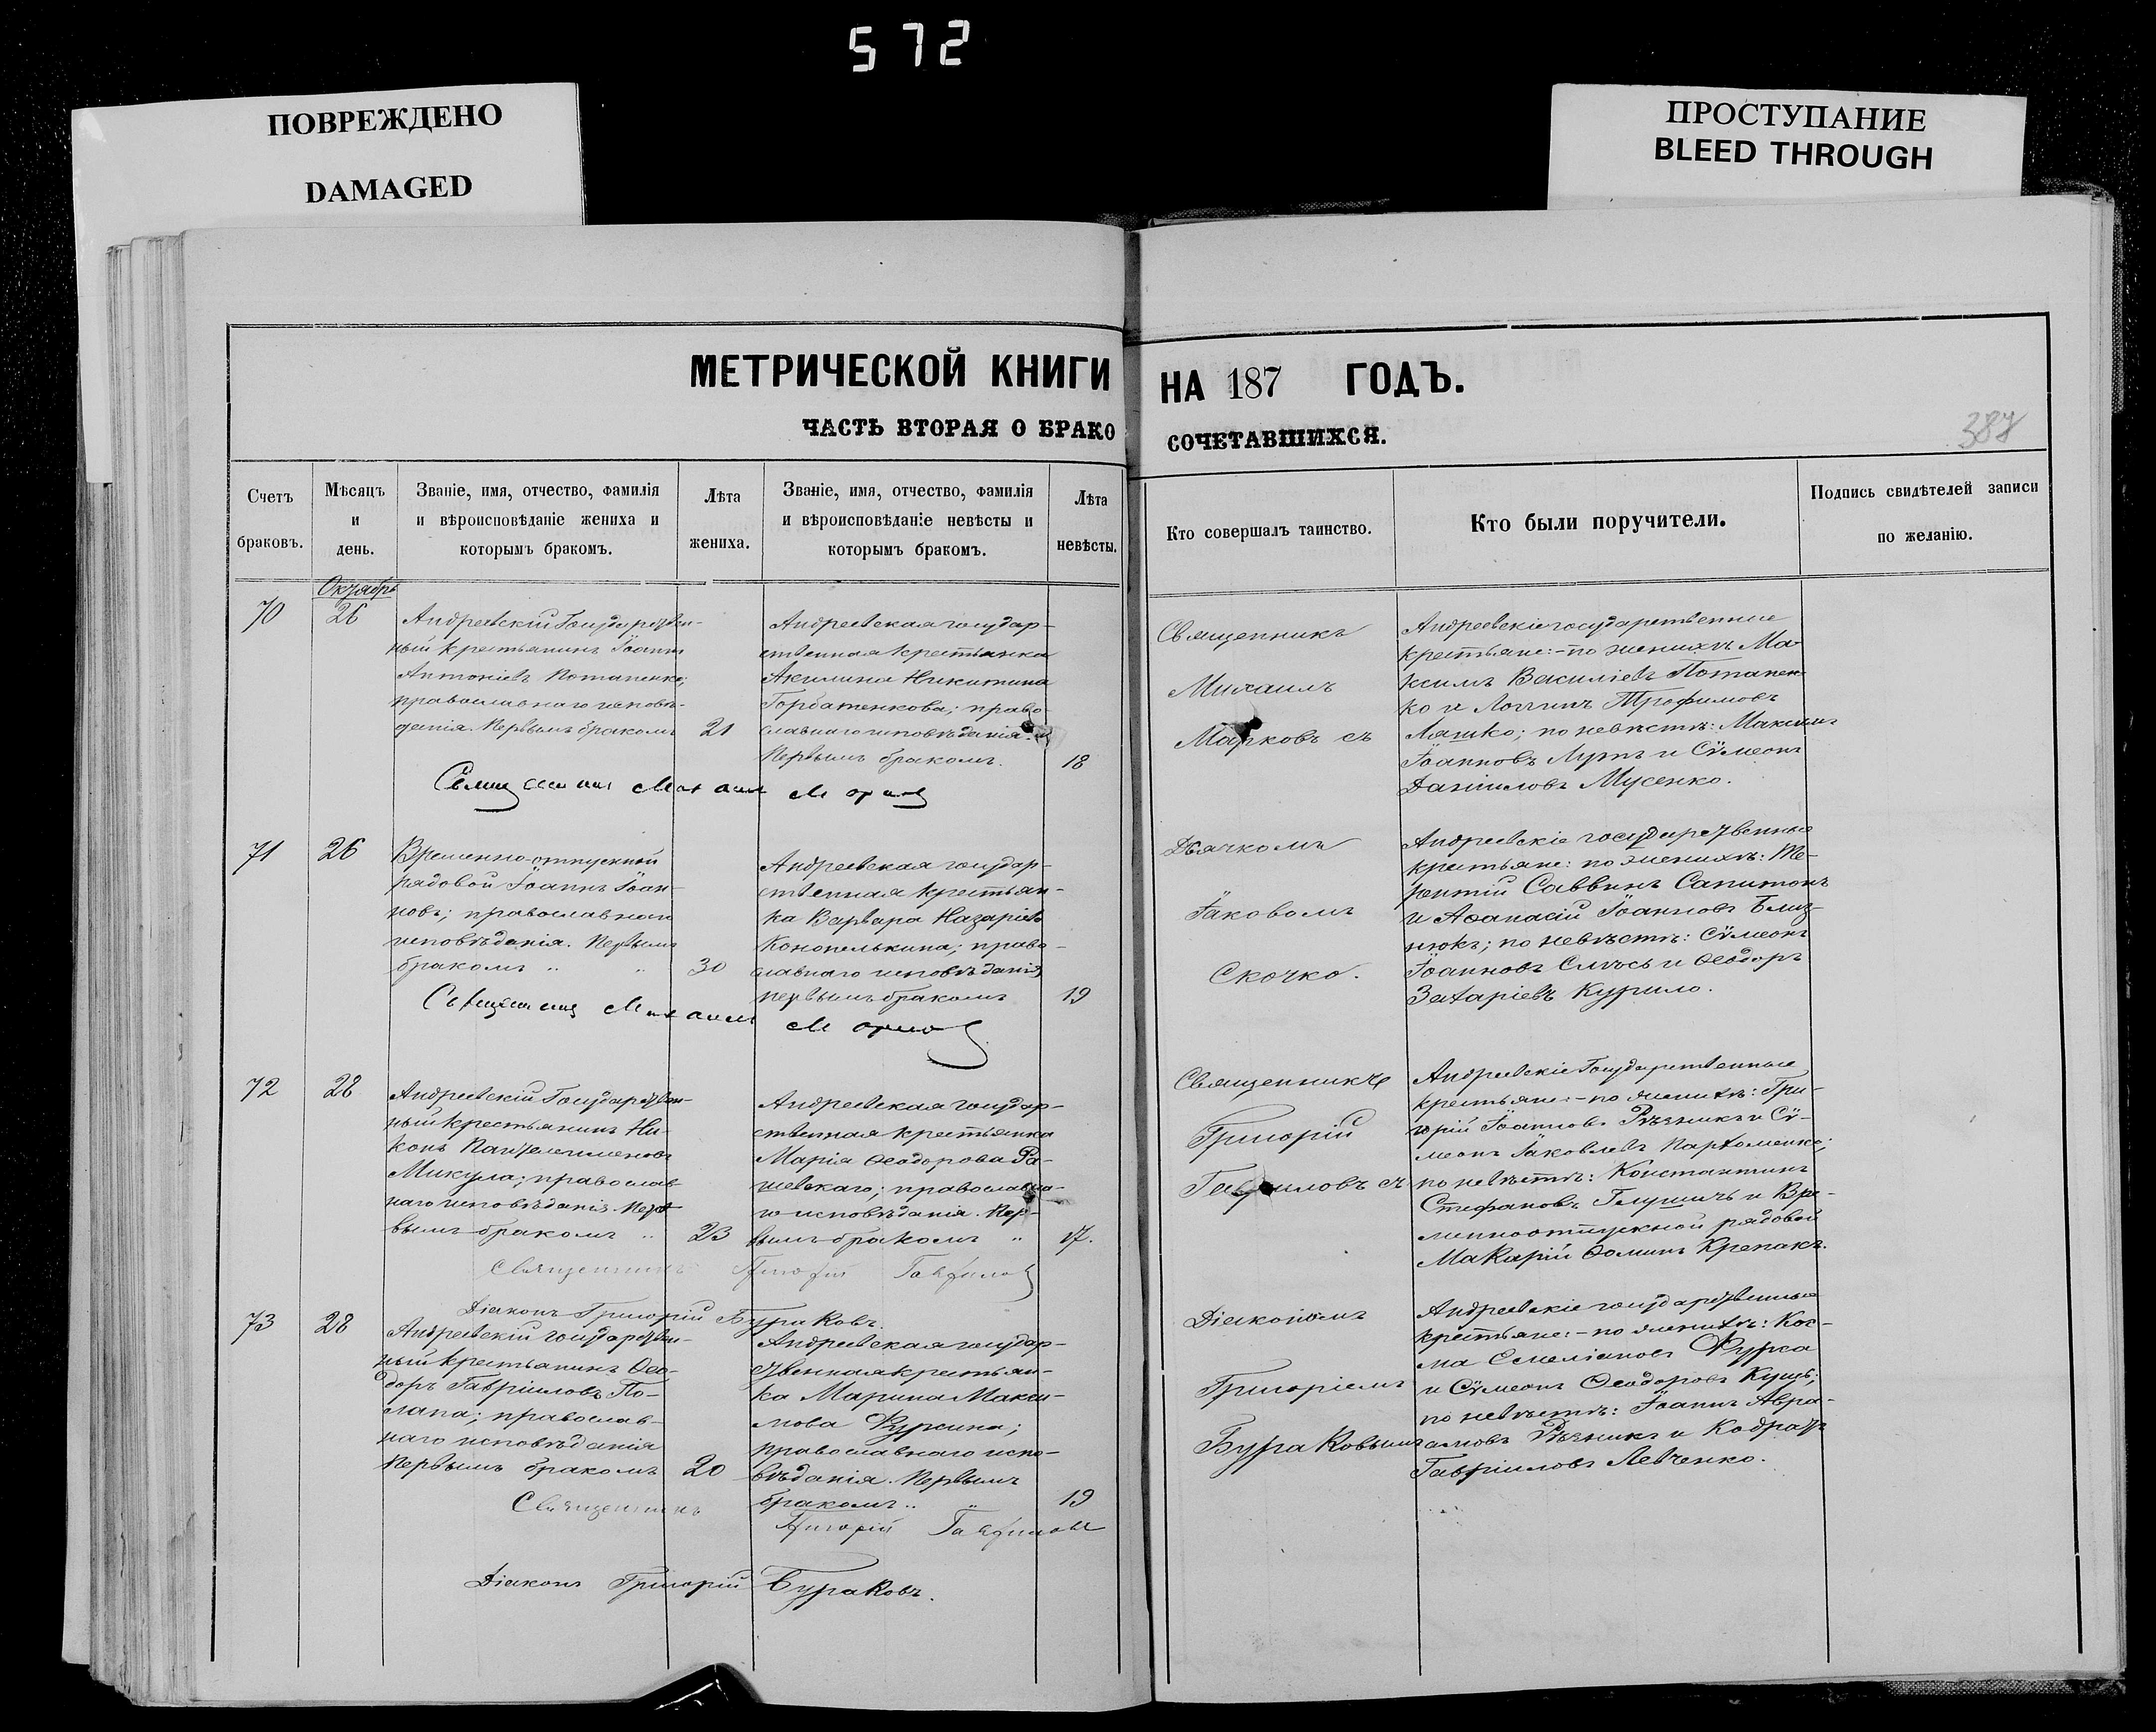 572
ПОВРЕЖДЕНО
DAMAGED
ПРОСТУПАНИЕ
BLEED THROUGH
МЕТРИЧЕСКОЙ КНИГИ НА 187 ГОДЪ.
ЧАСТЬ ВТОРАЯ О БРАКОСОЧЕТАВШИХСЯ.
387
Счетъ
браковъ.
Мѣсяцъ
и
день.
Званіе, имя, отчество, фамилія
и вѣроисповѣданіе жениха и
которымъ бракомъ.
Лѣта
жениха.
Званіе, имя, отчество, фамилія
и вѣроисповѣданіе невѣсты и
которымъ бракомъ.
Лѣта
невѣсты.
Кто совершалъ таинство.
Кто были поручители.
Подпись свидѣтелей записи
по желанію.
Октябрь
70
26
Андреевскій Государствен-
ный крестьянинъ Іоаннъ
Антоніевъ Потапенко;
православнаго исповѣ-
данія. Первымъ бракомъ
21
Андреевская государ-
ственная крестьянка
Акилина Никитина
Горбатенкова; право-
славнаго исповѣданія.
Первымъ бракомъ.
18
Священник Михаил Марков
Священникъ
Михаилъ
Марковъ съ
Андреевскіе государственные
крестьяне:- по женихѣ Ма-
ксимъ Василіевъ Потапен-
ко и Логгинъ Трофимовъ
Ляшко; по невѣстѣ: Максимъ
Іоанновъ Лутъ и Сѵмеонъ
Даніиловъ Мусенко.
71
26
Временно-отпускной
рядовой Іоаннъ Іоан-
новъ; православнаго
исповѣданія. Первымъ
бракомъ " "
30
Андреевская государ-
ственная крестьян-
ка Варвара Назаріева
Конопелькина; право-
славнаго исповѣданія
первымъ бракомъ
19
Священник Михаил Марков
Дьячкомъ
Іаковомъ
Скочко.
Андреевскіе государственные
крестьяне: по женихѣ: Те-
рентій Саввинъ Сапитонъ
и Аѳанасій Іоанновъ Близ-
нюкъ; по невѣстѣ: Сѵмеонъ
Іоанновъ Смѣсь и Ѳеодоръ
Захаріевъ Курило.
72
28
Андреевскій Государствен-
ный крестьянинъ Ни-
конъ Пантелеимоновъ
Микула; православ-
наго исповѣданія. Пер-
вымъ бракомъ "
23
Андреевская государ-
ственная крестьянка
Марія Ѳеодорова Ра-
шевскаго; православна-
го исповѣданія. Пер-
вымъ бракомъ "
17.
Священникъ Григорій Гавриловъ
Діаконъ Григорій Бураковъ.
Священникъ
Григорій
Гавриловъ съ
Андреевскіе Государственные
крестьяне:- по женихѣ: Гри-
горій Іоанновъ Рѣзникъ и Сѵ-
меонъ Іаковлевъ Пархоменко;
по невѣстѣ: Константинъ
Стефановъ Глушичъ и Вре-
менноотпускной рядовой
Макарій Ѳоминъ Крепакъ.
73
28
Андреевскій государствен-
ный крестьянинъ Ѳео-
доръ Гавріиловъ По-
лапа; православ-
наго исповѣданія
Первымъ бракомъ
20
Андреевская государ-
ственная крестьян-
ка Марина Макси-
мова Фуркина;
православнаго испо-
вѣданія. Первымъ
бракомъ " "
19
Священникъ Григорій Гавриловъ
Діаконъ Григорій Бураковъ.
Діакономъ
Григоріемъ
Бураковымъ
Андреевскіе государственные
крестьяне:- по женихѣ: Кос-
ма Емеліановъ Фурса
и Сѵмеонъ Ѳеодоровъ Куць;
по невѣстѣ: Іоаннъ Авра-
амовъ Рѣзникъ и Кодратъ
Гавріиловъ Левченко.